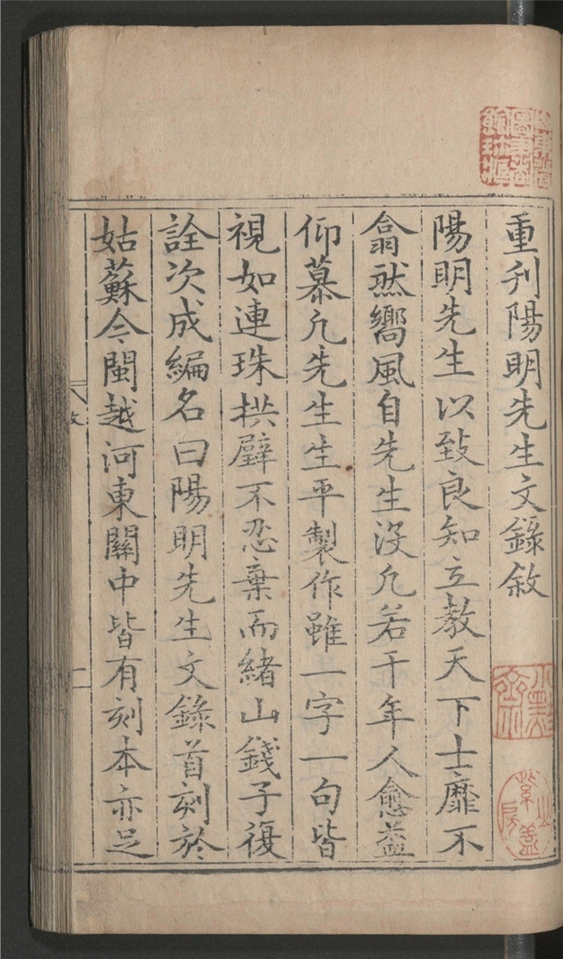 重刋陽明先生文錄敘
陽明先生以致良知立教天下士靡不
翕然嚮風自先生沒凢若干年人愈益
仰慕凢先生生平製作雖一字一句皆
視如連珠拱璧不忍棄而緒山錢子復
詮次成編名曰陽明先生文錄首刻於
姑蘇今閩越河東關中皆有刻本亦足